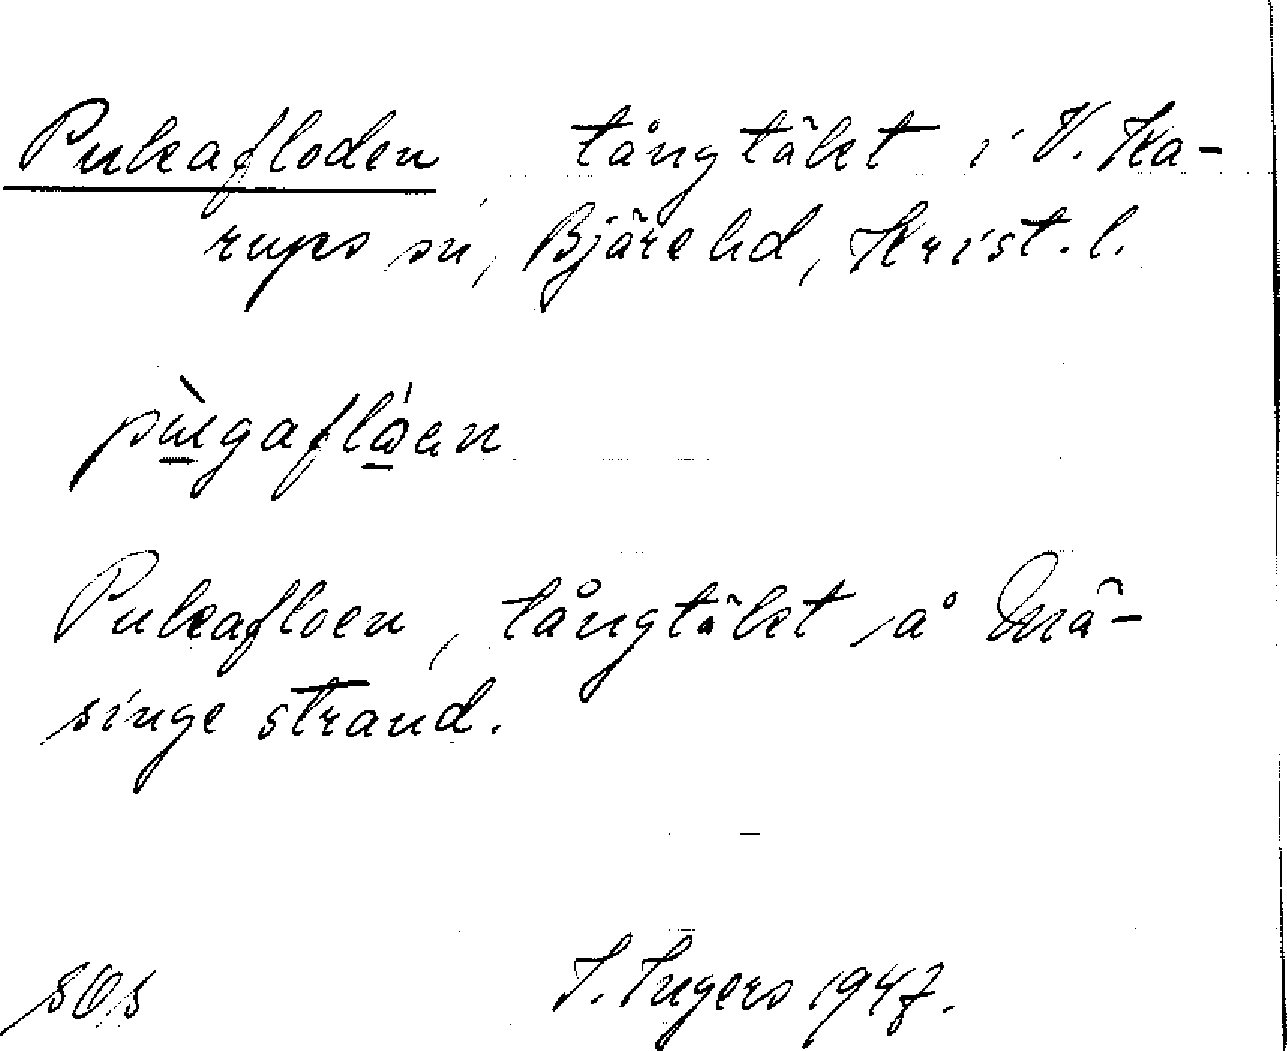 Pukafloden tångtäkt i V. Ka-
rups sn, Bjäre hd, Krist. l.
Pukafloen, tångtäkt å Mä-
singe strand.
SOs I. Ingers 1947.